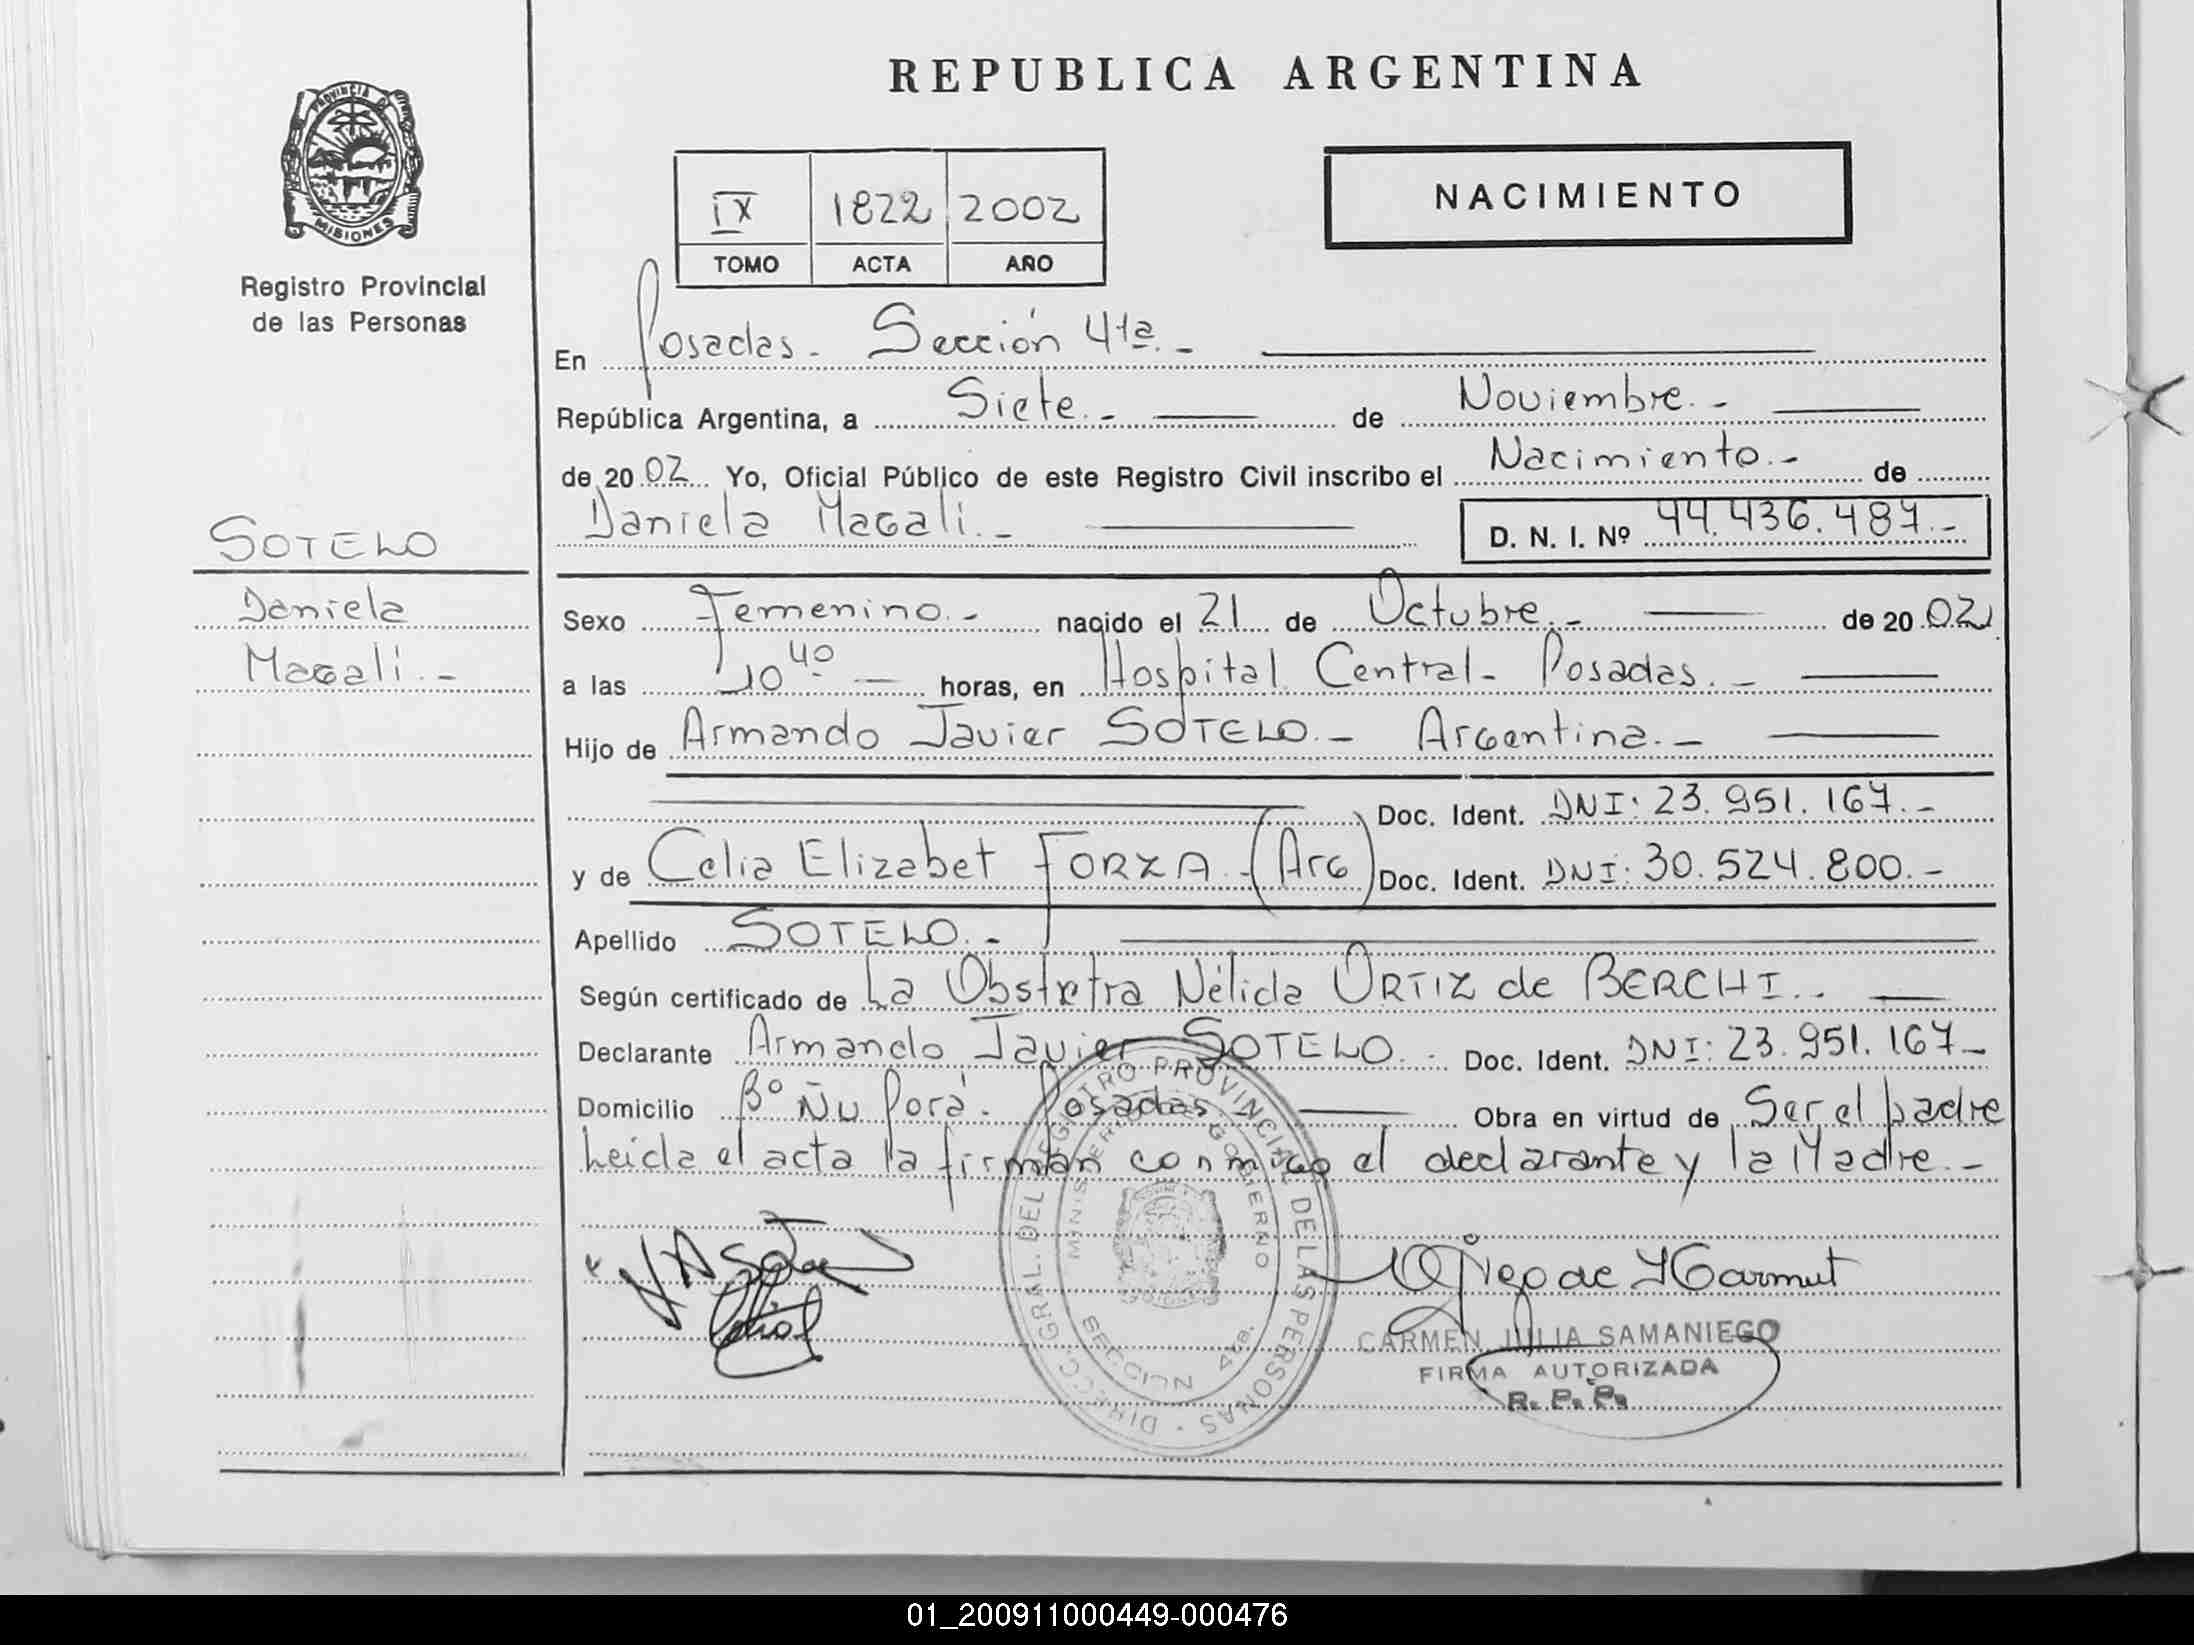 REPUBLICA ARGENTINA
PROVINCIA DE
MISIONES
Registro Provincial
de las Personas
IX 1822 2002
TOMO ACTA AÑO
NACIMIENTO
En Posadas. Sección 4ta.-
República Argentina, a Siete.- de Noviembre.-
de 2002 Yo, Oficial Público de este Registro Civil inscribo el Nacimiento.- de
Daniela Magali.- D. N. I. Nº 44.436.487.-
SOTELO
Daniela
Magali.-
Sexo Femenino.- nacido el 21 de Octubre.- de 2002
a las 10 40 horas, en Hospital Central- Posadas.-
Hijo de Armando Javier SOTELO.- Argentina.-
Doc. Ident. DNI: 23.951.167.-
y de Celia Elizabet FORZA.- (Arg) Doc. Ident. DNI: 30.524.800.-
Apellido SOTELO.-
Según certificado de La Obstetra Nélida ORTIZ de BERCHI..
Declarante Armando Javier SOTELO.- Doc. Ident. DNI: 23.951.167-
Domicilio Bº Ñu Porá. Posadas Obra en virtud de Ser el padre
Leida el acta la firman conmigo el declarante y la Madre.-
DIRECC. GRAL. DEL REGISTRO PROVINCIAL DE LAS PERSONAS
MINISTERIO DE GOBIERNO
SECCION 4ta.
CARMEN JULIA SAMANIEGO
FIRMA AUTORIZADA
R. P. P.
01_200911000449-000476